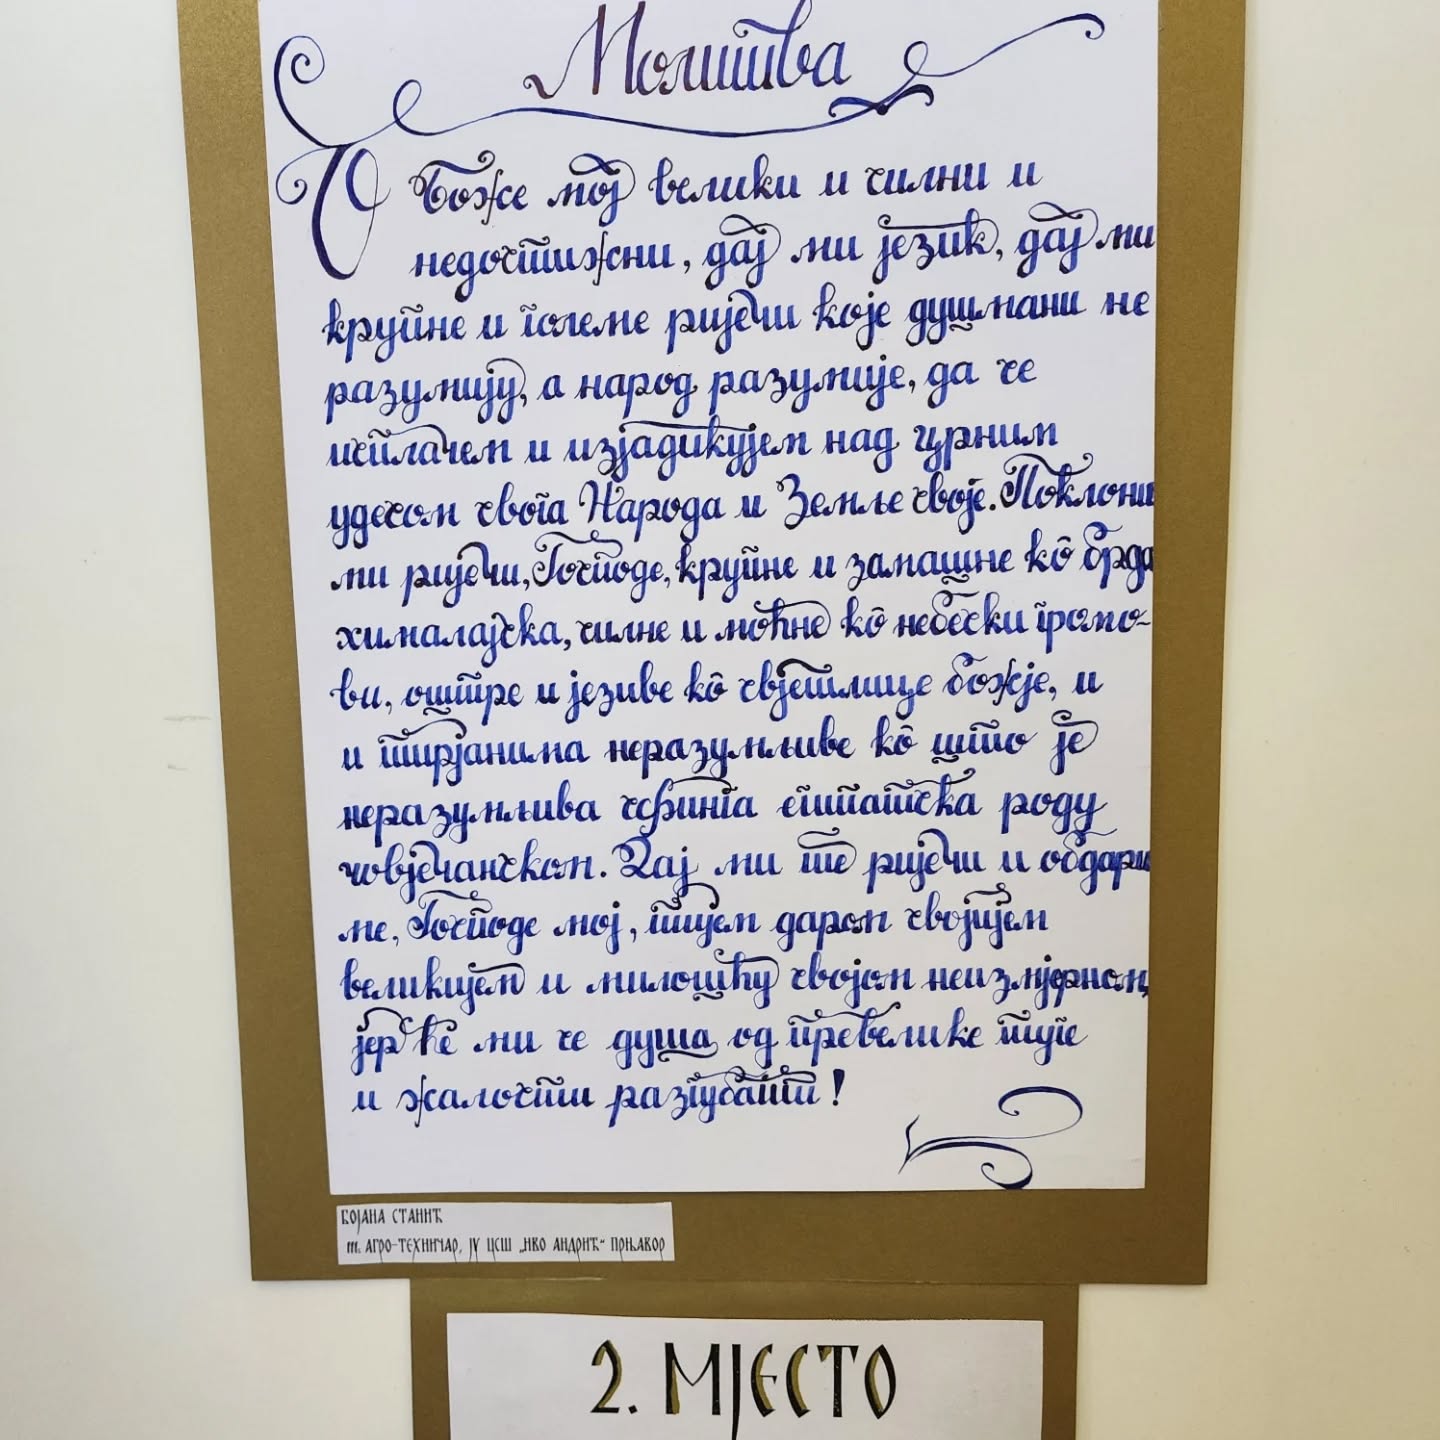 Молитва
О Боже мој велики и силни и
недостижни, дај ми језик, дај ми
крупне и големе ријечи које душмани не
разумију, а народ разумије, да се
исплачем и изјадикујем над црним
удесом свога Народа и Земље своје. Поклони
ми ријечи, Господе, крупне и замашне кô брда
хималајска, силне и моћне кô небески громо-
ви, оштре и језиве кô свјетлице божје, и
и тирјанима неразумљиве кô што је
неразумљива сфинга египатска роду
човјечанском. Дај ми те ријечи и обдари
ме, Господе мој, тијем даром својијем
великијем и милошћу својом неизмјерном,
јер ће ми се душа од превелике туге
и жалости разгубати!
БОЈАНА СТАНИЋ
т. АГРО-ТЕХНИЧАР, ЈУ ЦСШ „ИВО АНДРИЋ“ ПРЊАВОР
2. МЈЕСТО